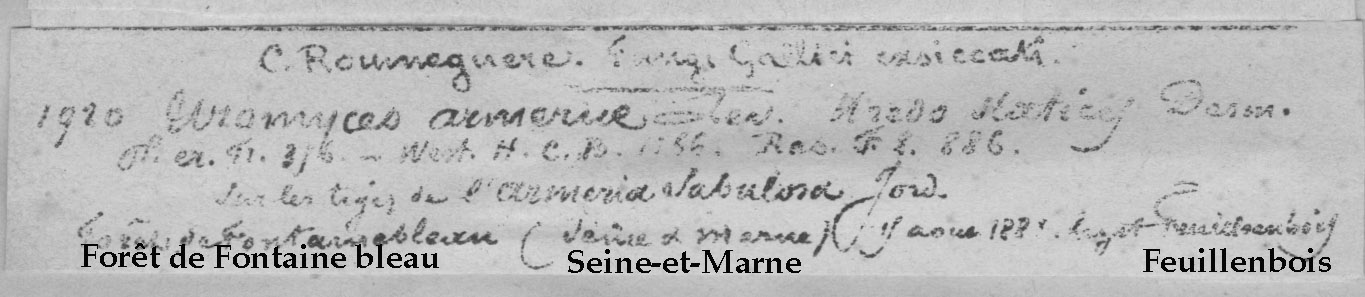 C. Roumeguere. Fungi Gallici exsiccati.
1920 Uromyces armeriae Lev. Uredo Statices Desm.
Pl. cr. Fr. 376. - West. H. C. B. Rab. F. E. 886.
Sur les tiges de l'armeria Sabulosa Jord.
Forêt de Fontainebleau (Seine & Marne) aout Legit Feuilleaubois
Forêt de Fontaine bleau Seine-et-Marne Feuillenbois